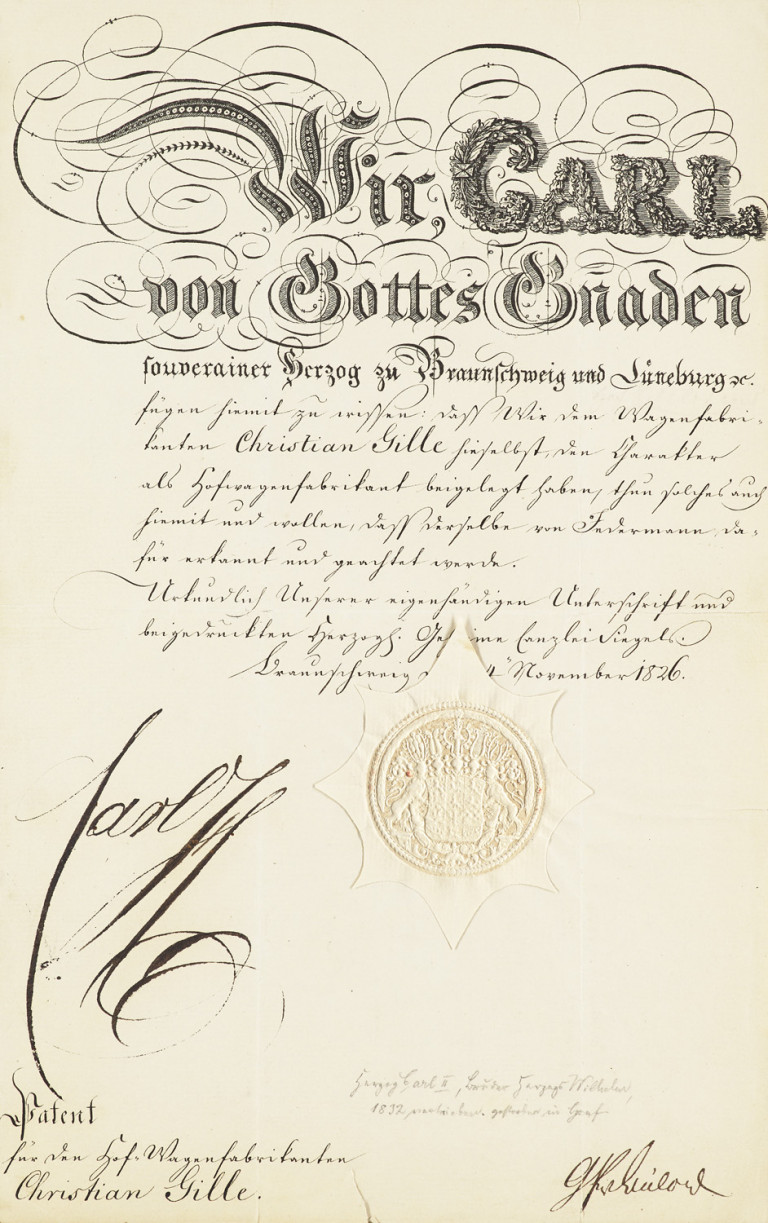 Wir, CARL
von Gottes Gnaden
souverainer Herzog zu Braunschweig und Lüneburg ꝛc.
fügen hiemit zu wissen: daß Wir dem Wagenfabri-
kanten Christian Gille hieselbst, den Charakter
als Hofwagenfabrikant beigelegt haben, thun solches auch
hiemit und wollen, daß derselbe von Jedermann, da-
für erkannt und geachtet werde.
Urkundlich Unserer eigenhändigen Unterschrift und
beigedruckten Herzogl. Geh me Canzlei Siegels.
Braunschweig 4ⁿ November 1826.
Carl H
Herzog Carl II, Bruder Herzogs Wilhelm,
1832 vertrieben. gestorben in Genf
Patent
für den Hof-Wagenfabrikanten
Christian Gille.